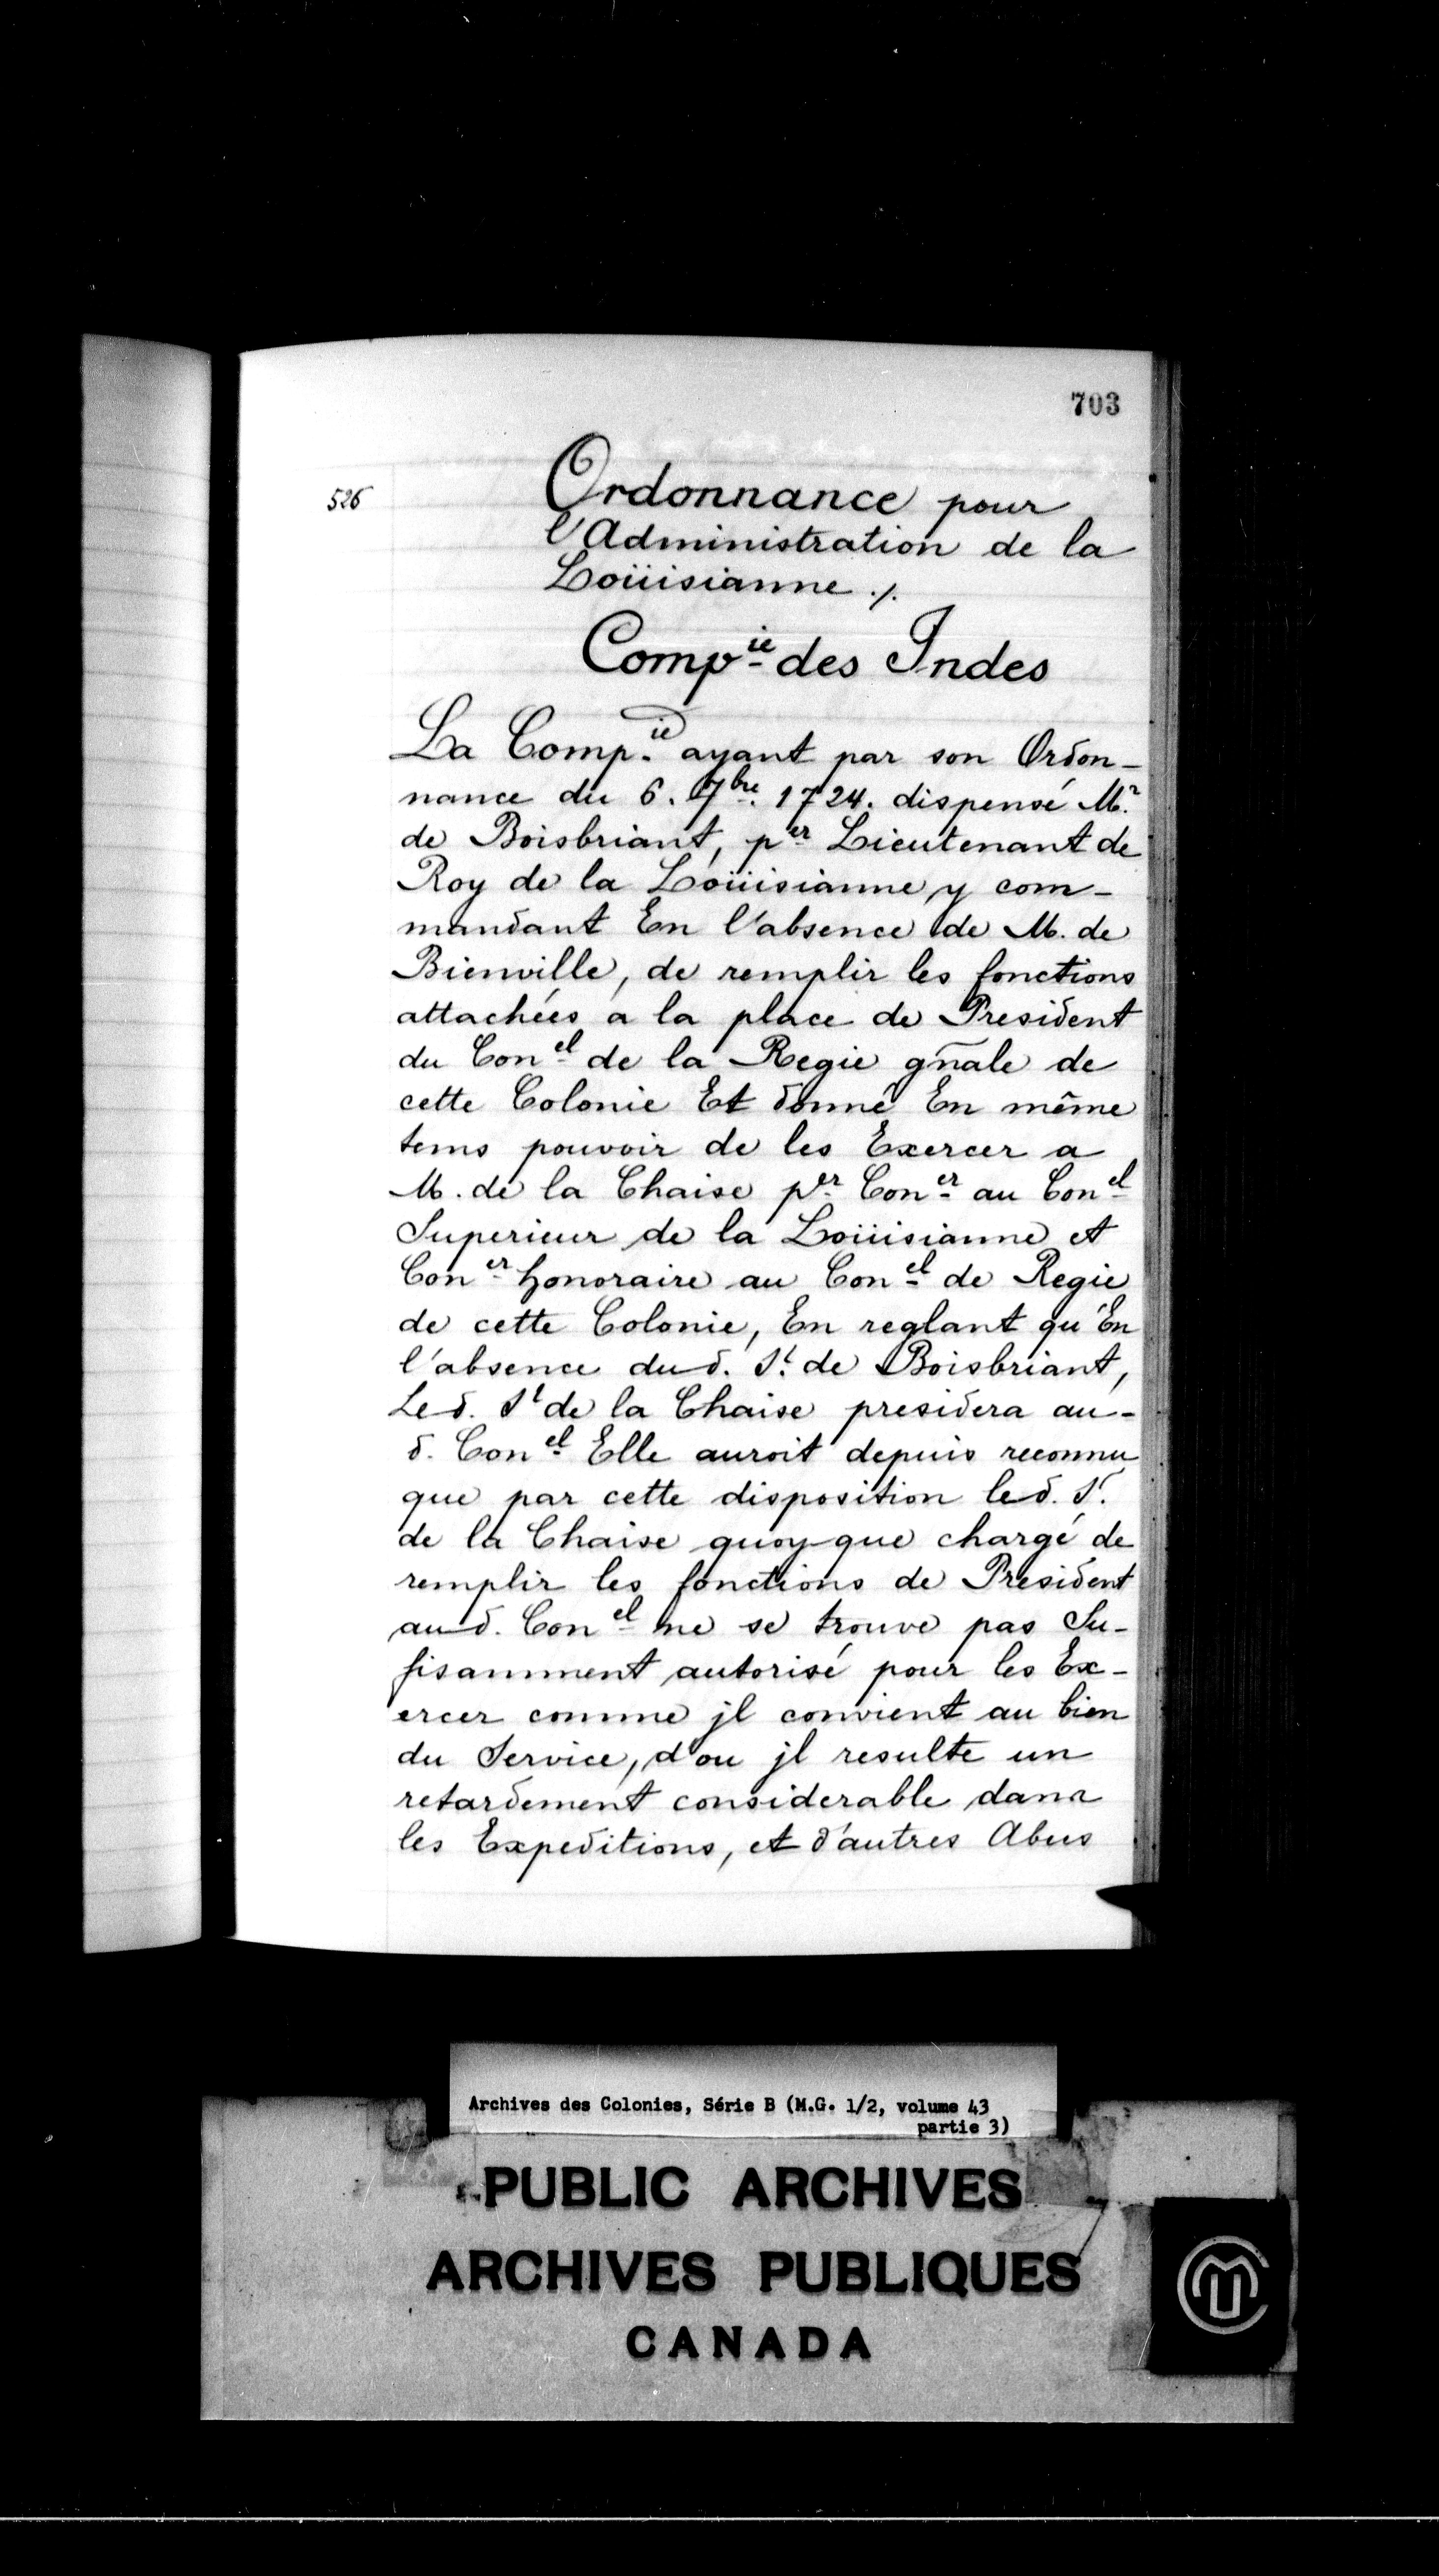 703
526
Ordonnance pour
l'Administration de la
Loüisianne ./.
Compie des Indes
La Comp.ie ayant par son Ordon-
nance du 6. 7bre. 1724. dispensé Mr.
de Boisbriant, per Lieutenant de
Roy de la Loüisianne y com-
mandant En l'absence de M. de
Bienville, de remplir les fonctions
attachées a la place de President
du Conel de la Regie gñale de
cette Colonie Et donné En même
tems pouvoir de les Exercer a
M. de la Chaise per Coner au Conel
Superieur de la Loüisianne et
Coner honoraire au Conel de Regie
de cette Colonie, En reglant qu'En
l'absence dud. Sr. de Boisbriant,
Led. Sr de la Chaise presidera au-
d. Conel Elle auroit depuis reconnu
que par cette disposition led. Sr.
de la Chaise quoy que chargé de
remplir les fonctions de President
aud. Conel ne se trouve pas Su-
fisamment autorisé pour les Ex-
ercer comme jl convient au bien
du Service, d'ou jl resulte un
retardement considerable dans
les Expeditions, et d'autres Abus
Archives des Colonies, Série B (M.G. 1/2, volume 43
partie 3)
PUBLIC ARCHIVES
ARCHIVES PUBLIQUES
CANADA